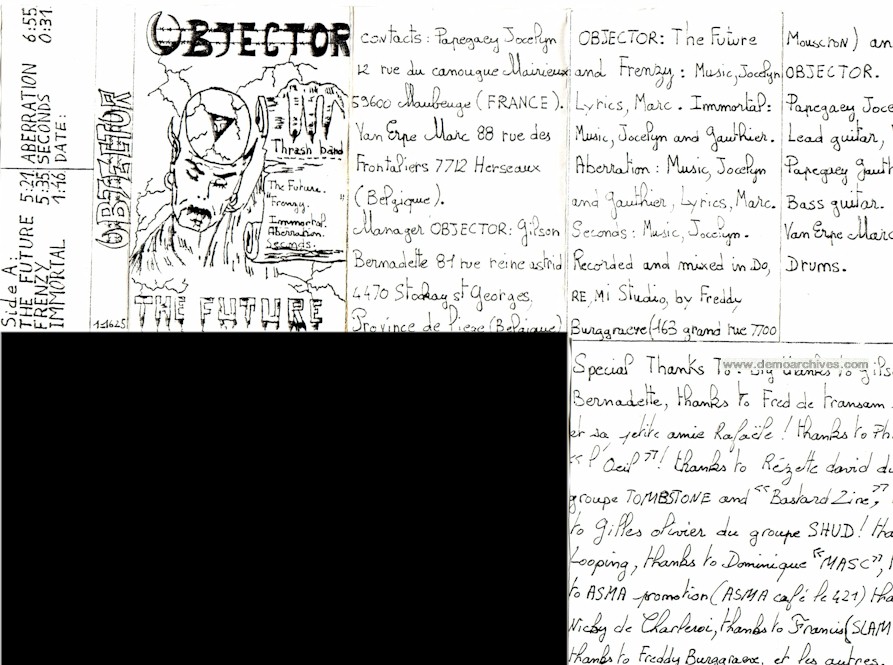 Side A:
THE FUTURE 5:21 ABERRATION 6:55
FRENZY 5:35 SECONDS 0:31
IMMORTAL 1:16 DATE:
OBJECTOR
OBJECTOR
Thrash band
The Future.
"Frenzy."
Immortal
Aberration.
Seconds.
THE FUTURE
contacts: Papegaey Jocelyn
12 rue du camougue Mairieux
59600 Maubeuge (FRANCE).
Van Erpe Marc 88 rue des
Frontaliers 7712 Herseaux
(Belgique).
Manager OBJECTOR: Gilson
Bernadette 81 rue reine astrid
4470 Stockay st Georges,
Province de Liege (Belgique)
OBJECTOR: The Future
and Frenzy: Music, Jocelyn
Lyrics, Marc. Immortal:
Music, Jocelyn and Gauthier.
Aberration: Music, Jocelyn
and Gauthier, Lyrics, Marc.
Seconds: Music, Jocelyn.
Recorded and mixed in Do,
RE, Mi Studio, by Freddy
Burggraeve (163 grand rue 7700
Mouscron) an
OBJECTOR.
Papegaey Joce
Lead guitar,
Papegaey Gauth
Bass guitar.
Van Erpe Marc
Drums.
www.demoarchives.com
Special Thanks To: Big thanks to Gils
Bernadette, thanks to Fred de transam
et sa petite amie Rafaële! thanks to Ph
"l'Oeil"! thanks to Rézette david du
groupe TOMBSTONE and "Bastard Zine",
to Gilles olivier du groupe SHUD! tha
Looping, thanks to Dominique "MASC",
to ASMA promotion (ASMA café le 421) tha
Nicky de Charleroi, thanks to Francis (SLAM
thanks to Freddy Burggraeve, et les autres.